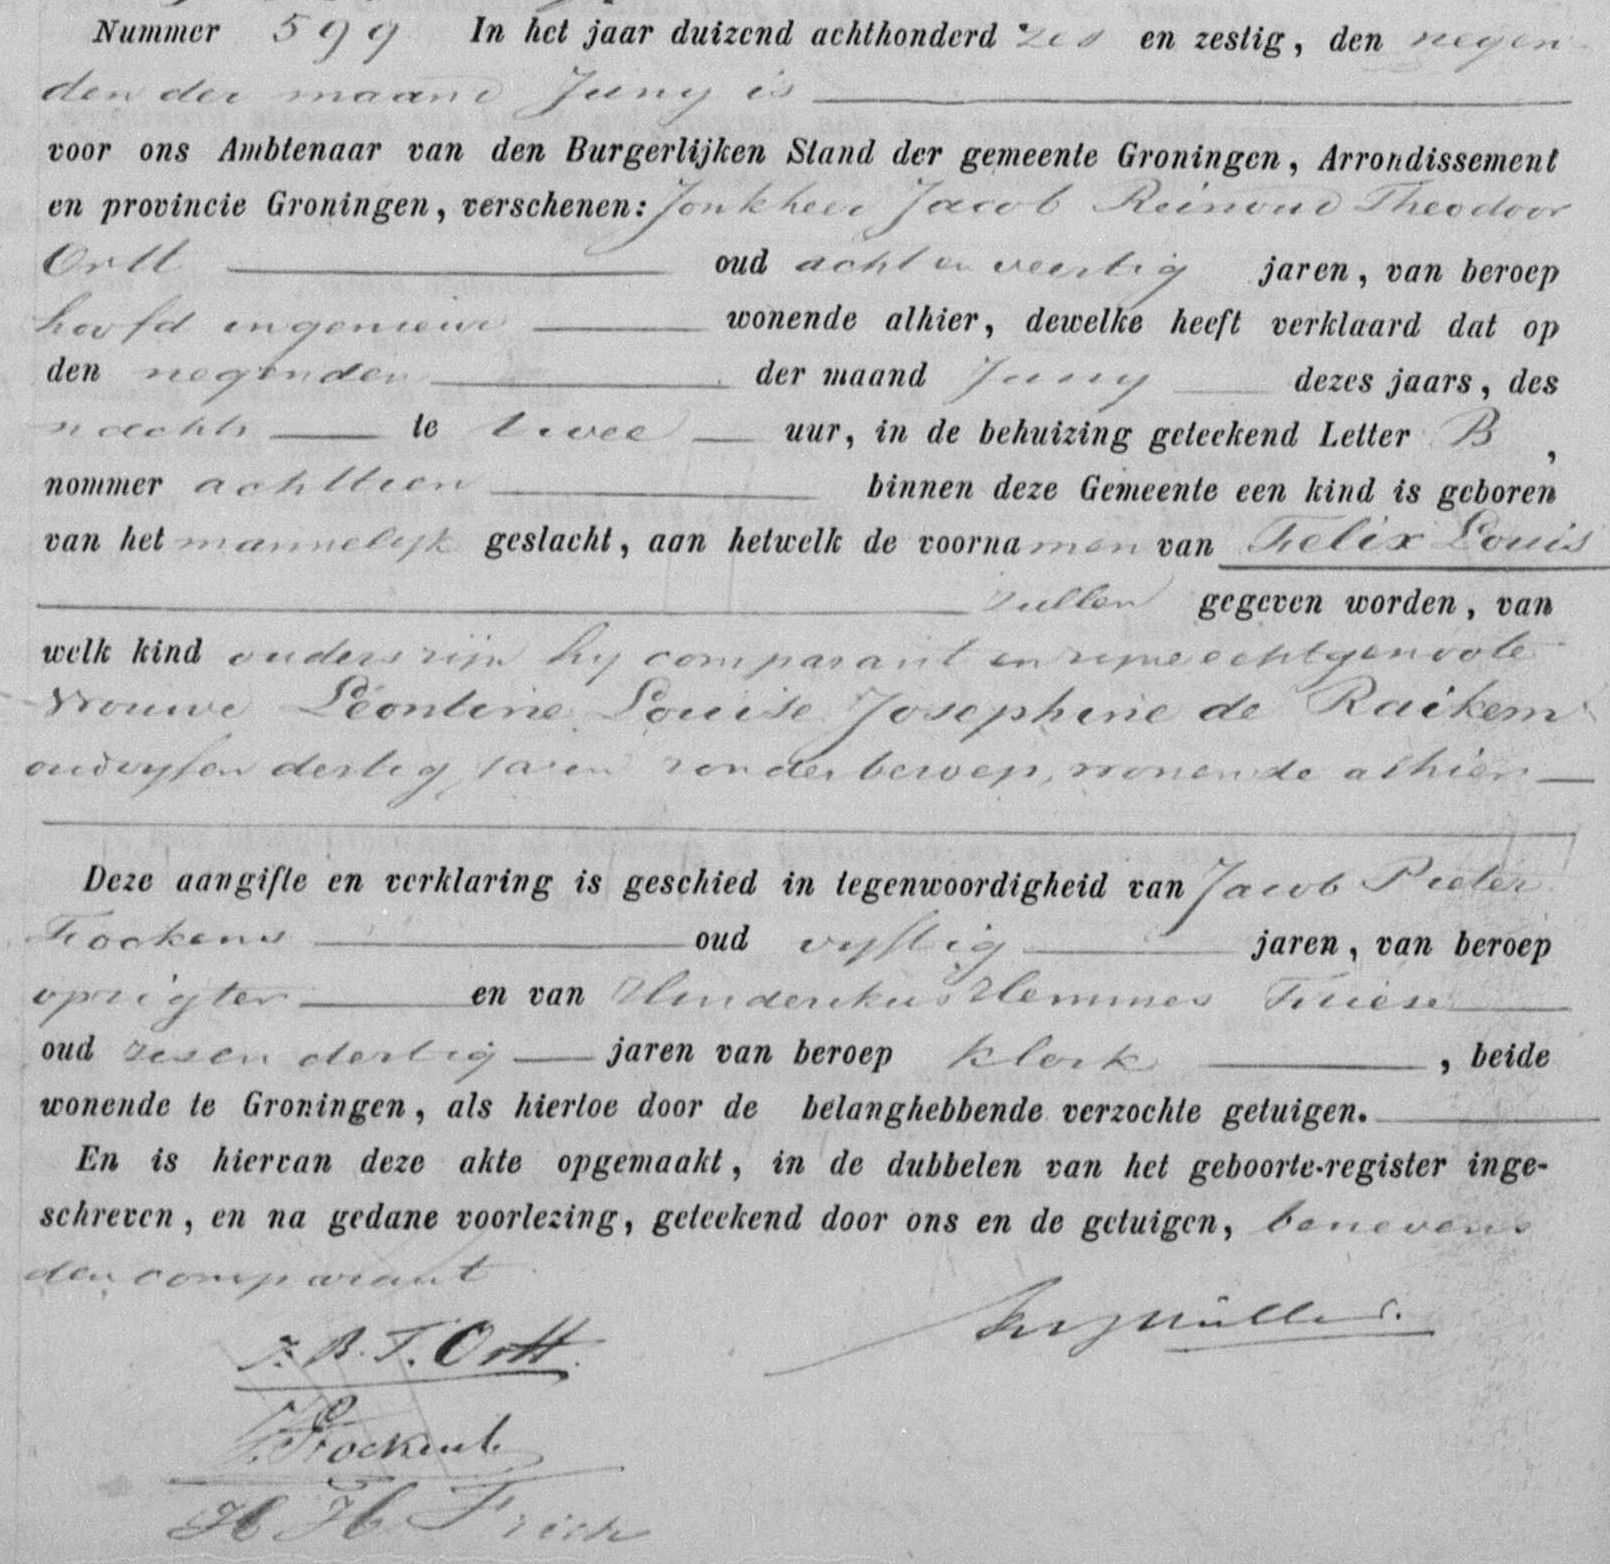 Nummer 599 In het jaar duizend achthonderd zes en zestig, den negen
den der maand Juny is
voor ons Ambtenaar van den Burgerlijken Stand der gemeente Groningen, Arrondissement
en provincie Groningen, verschenen: Jonkheer Jacob Reinoud Theodoor
Ortt oud acht en veertig jaren, van beroep
hoofd ingenieur wonende alhier, dewelke heeft verklaard dat op
den negenden der maand Juny dezes jaars, des
nachts te twee uur, in de behuizing geteekend Letter B,
nommer achttien binnen deze Gemeente een kind is geboren
van het mannelyk geslacht, aan hetwelk de voornamen van Felix Louis
zullen gegeven worden, van
welk kind ouders zijn hy comparant en zyne echtgenoote
vrouwe Léontine Louise Josephine de Raikem
oud vyf en dertig jaren zonder beroep, wonende alhier
Deze aangifte en verklaring is geschied in tegenwoordigheid van Jacob Pieter
Fockens oud vyftig jaren, van beroep
oprigter en van Hinderikus Hemmes Friese
oud zes en dertig jaren van beroep klerk, beide
wonende te Groningen, als hiertoe door de belanghebbende verzochte getuigen.
En is hiervan deze akte opgemaakt, in de dubbelen van het geboorte-register inge-
schreven, en na gedane voorlezing, geteekend door ons en de getuigen, benevens
den comparant
J. R. T. Ortt.
Fockens
H H Friese